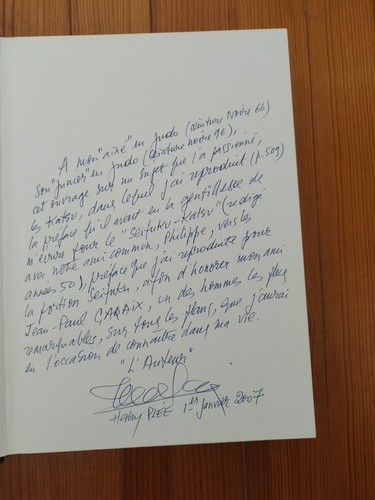 A mon "aîné" en judo (ceinture noire 66)
Son "junior" en judo (ceinture noire 96),
cet ouvrage sur un sujet que l'a passionné,
les Katsu, dans lequel j'ai reproduit (p.509)
la préface qu'il avait eu la gentillesse de
m'écrire pour le "Seifuku-Katsu" (rédigé
avec notre ami commun, Philippe, vers les
années 50), préface que j'ai reproduite pour
la portion Seifuku, afin d'honorer mon ami
Jean-Paul, un des hommes les plus
remarquables, sur tous les plans, que j'aurai
eu l'occasion de connaître dans ma vie.
"L'Auteur"
Henry PLÉE 1er janvier 2007